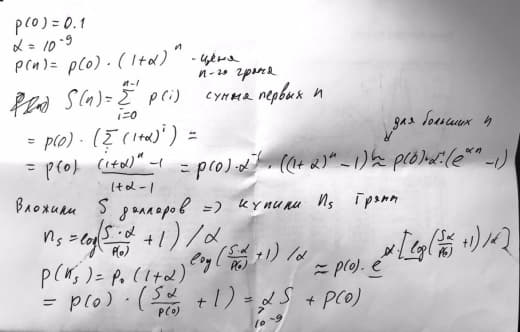 p(0) = 0.1
α = 10^-9
p(n) = p(0) · (1+α)^n - цена n-го грама
S(n) = Σ_{i=0}^{n-1} p(i) сумма первых n
= p(0) · (Σ (1+α)^i) =
для больших n
= p(0) · ((1+α)^n - 1)/(1+α-1) = p(0)·α^-1 · ((1+α)^n - 1) ≈ p(0)·α^-1·(e^{αn} - 1)
Вложили S долларов => купили n_s грамм
n_s = log(S·α/p(0) + 1) / α
p(n_s) = p_0 (1+α)^{log(Sα/p(0) + 1) / α} ≈ p(0) · e^{α[log(Sα/p(0) + 1)/α]}
= p(0) · (Sα/p(0) + 1) = αS + p(0)
10^-9